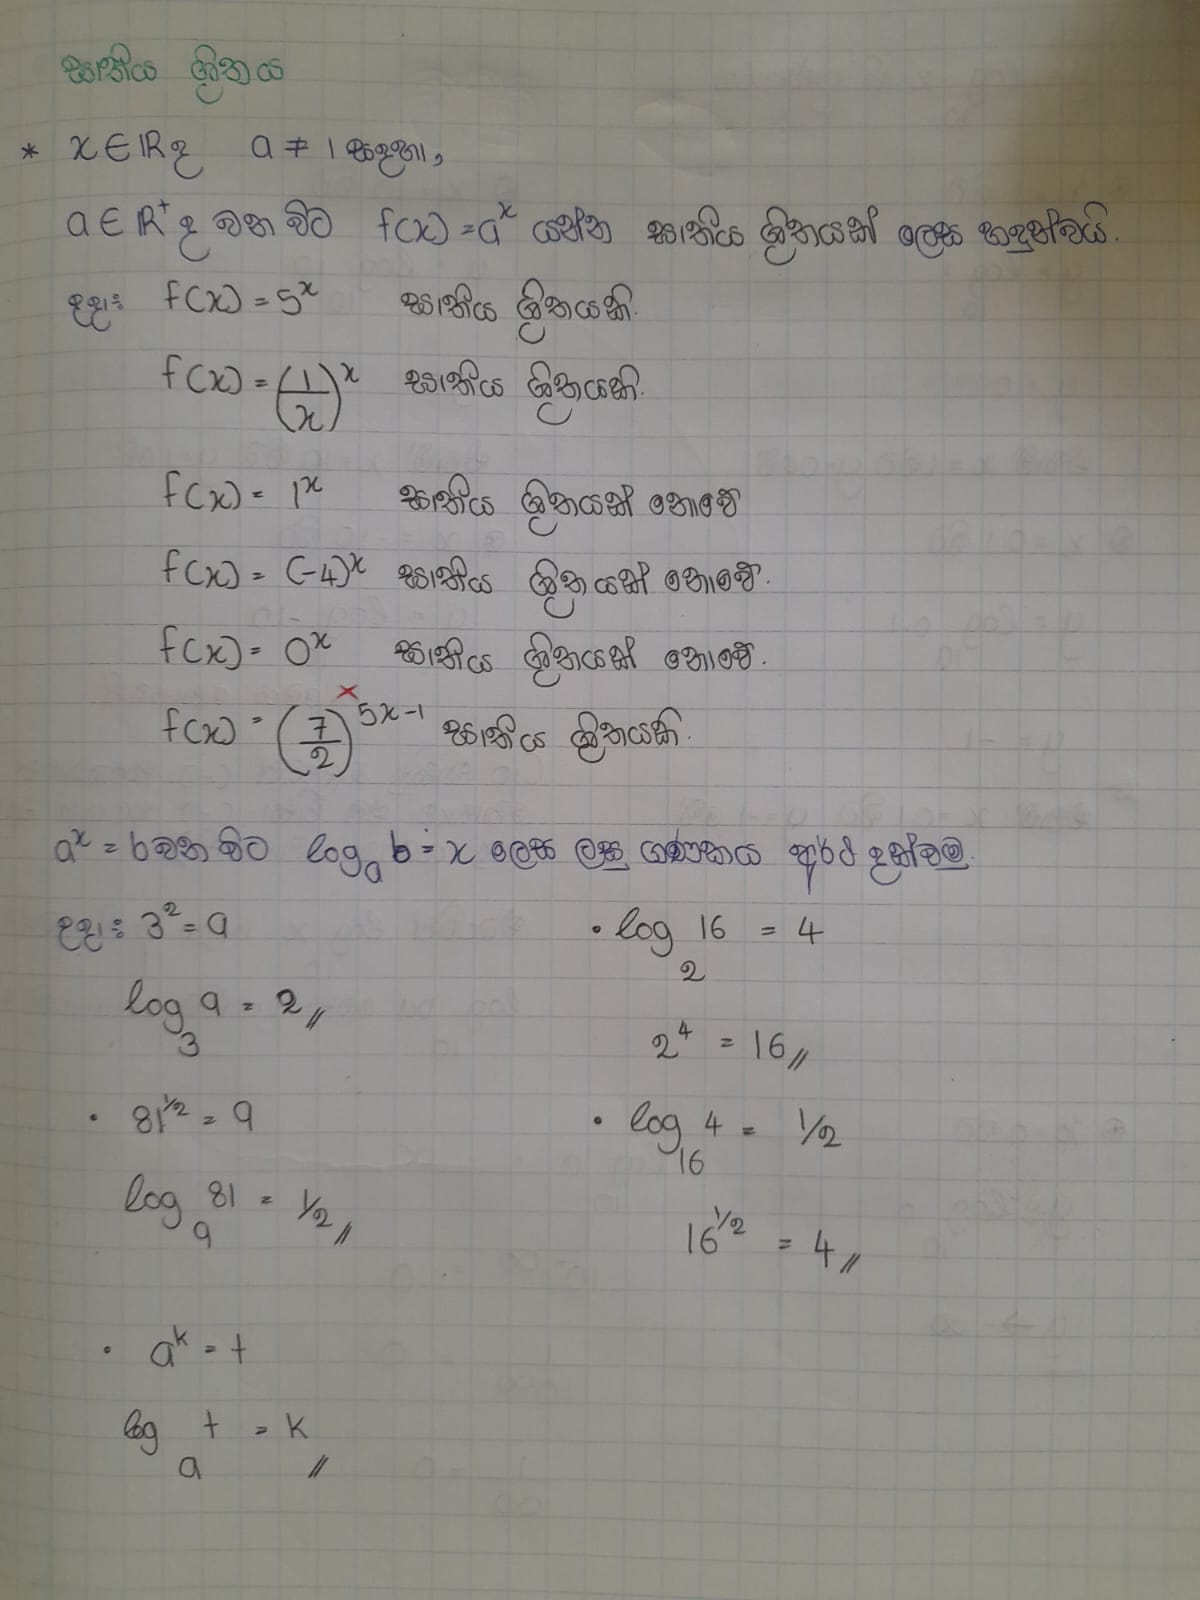 ඝාතීය ශ්‍රිතය
* x ∈ ℝ ද a ≠ 1 සඳහා,
a ∈ ℝ⁺ ද වන විට f(x) = aˣ යන්න ඝාතීය ශ්‍රිතයක් ලෙස හඳුන්වයි.
උදා: f(x) = 5ˣ ඝාතීය ශ්‍රිතයකි.
f(x) = (1/x)ˣ ඝාතීය ශ්‍රිතයකි.
f(x) = 1ˣ ඝාතීය ශ්‍රිතයක් නොවේ
f(x) = (-4)ˣ ඝාතීය ශ්‍රිතයක් නොවේ.
f(x) = 0ˣ ඝාතීය ශ්‍රිතයක් නොවේ.
×
f(x) = (7/2)^(5x-1) ඝාතීය ශ්‍රිතයකි.
aˣ = b වන විට logₐ b = x ලෙස ලඝු ගණකය අර්ථ දක්වමු.
උදා: 3² = 9
log₃ 9 = 2 //
• 81^(1/2) = 9
log₉ 81 = 1/2 //
• aᵏ = t
logₐ t = k //
• log₂ 16 = 4
2⁴ = 16 //
• log₁₆ 4 = 1/2
16^(1/2) = 4 //